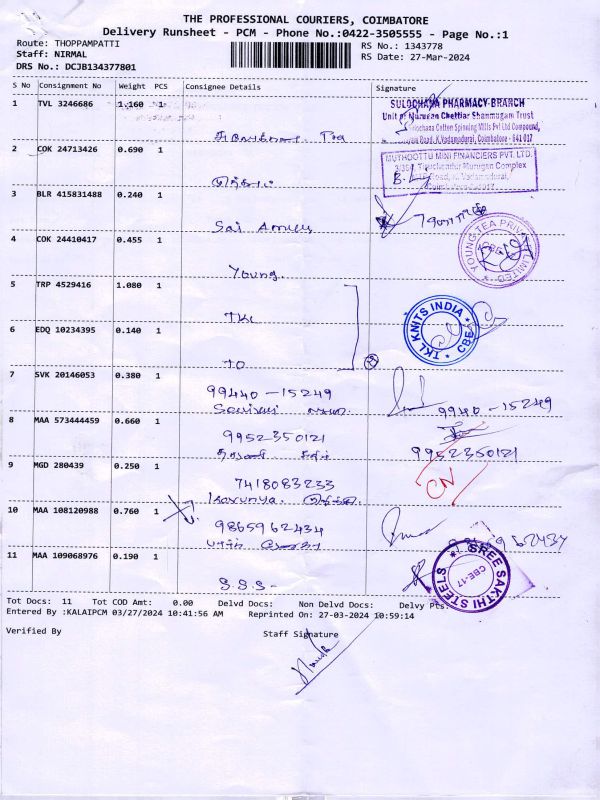 THE PROFESSIONAL COURIERS, COIMBATORE
Delivery Runsheet - PCM - Phone No.:0422-3505555 - Page No.:1
Route: THOPPAMPATTI
Staff: NIRMAL
DRS No.: DCJB134377801
RS No.: 1343778
RS Date: 27-Mar-2024
S No Consignment No Weight PCS Consignee Details Signature
1 TVL 3246686 1.160 1
SULOCHANA PHARMACY-BRANCH
Unit of Murugan Chettiar Shanmugam Trust
Sulochana Cotton Spinning Mills Pvt Ltd Compound,
Road, K.Vadamadurai, Coimbatore - 641 017
2 COK 24713426 0.690 1
MUTHOOTTU MINI FINANCIERS PVT. LTD.
Tiruchendur Murugan Complex
Road, K. Vadamadurai,
3 BLR 415831488 0.240 1
Sai
4 COK 24410417 0.455 1
Young.
YOUNG TEA PRIVATE LIMITED
5 TRP 4529416 1.080 1
TKL
TKL KNITS INDIA * CBE *
6 EDQ 10234395 0.140 1
TO
7 SVK 20146053 0.380 1
99440-15249
99440-15249
8 MAA 573444459 0.660 1
9952350121
9952350121
9 MGD 280439 0.250 1
7418083233
CN
10 MAA 108120988 0.760 1
9865962434
11 MAA 109068976 0.190 1
S.S.S-
SREE SAKTHI STEELS
CBE-17
Tot Docs: 11 Tot COD Amt: 0.00 Delvd Docs: Non Delvd Docs: Delvy Pts:
Entered By :KALAIPCM 03/27/2024 10:41:56 AM Reprinted On: 27-03-2024 10:59:14
Verified By Staff Signature